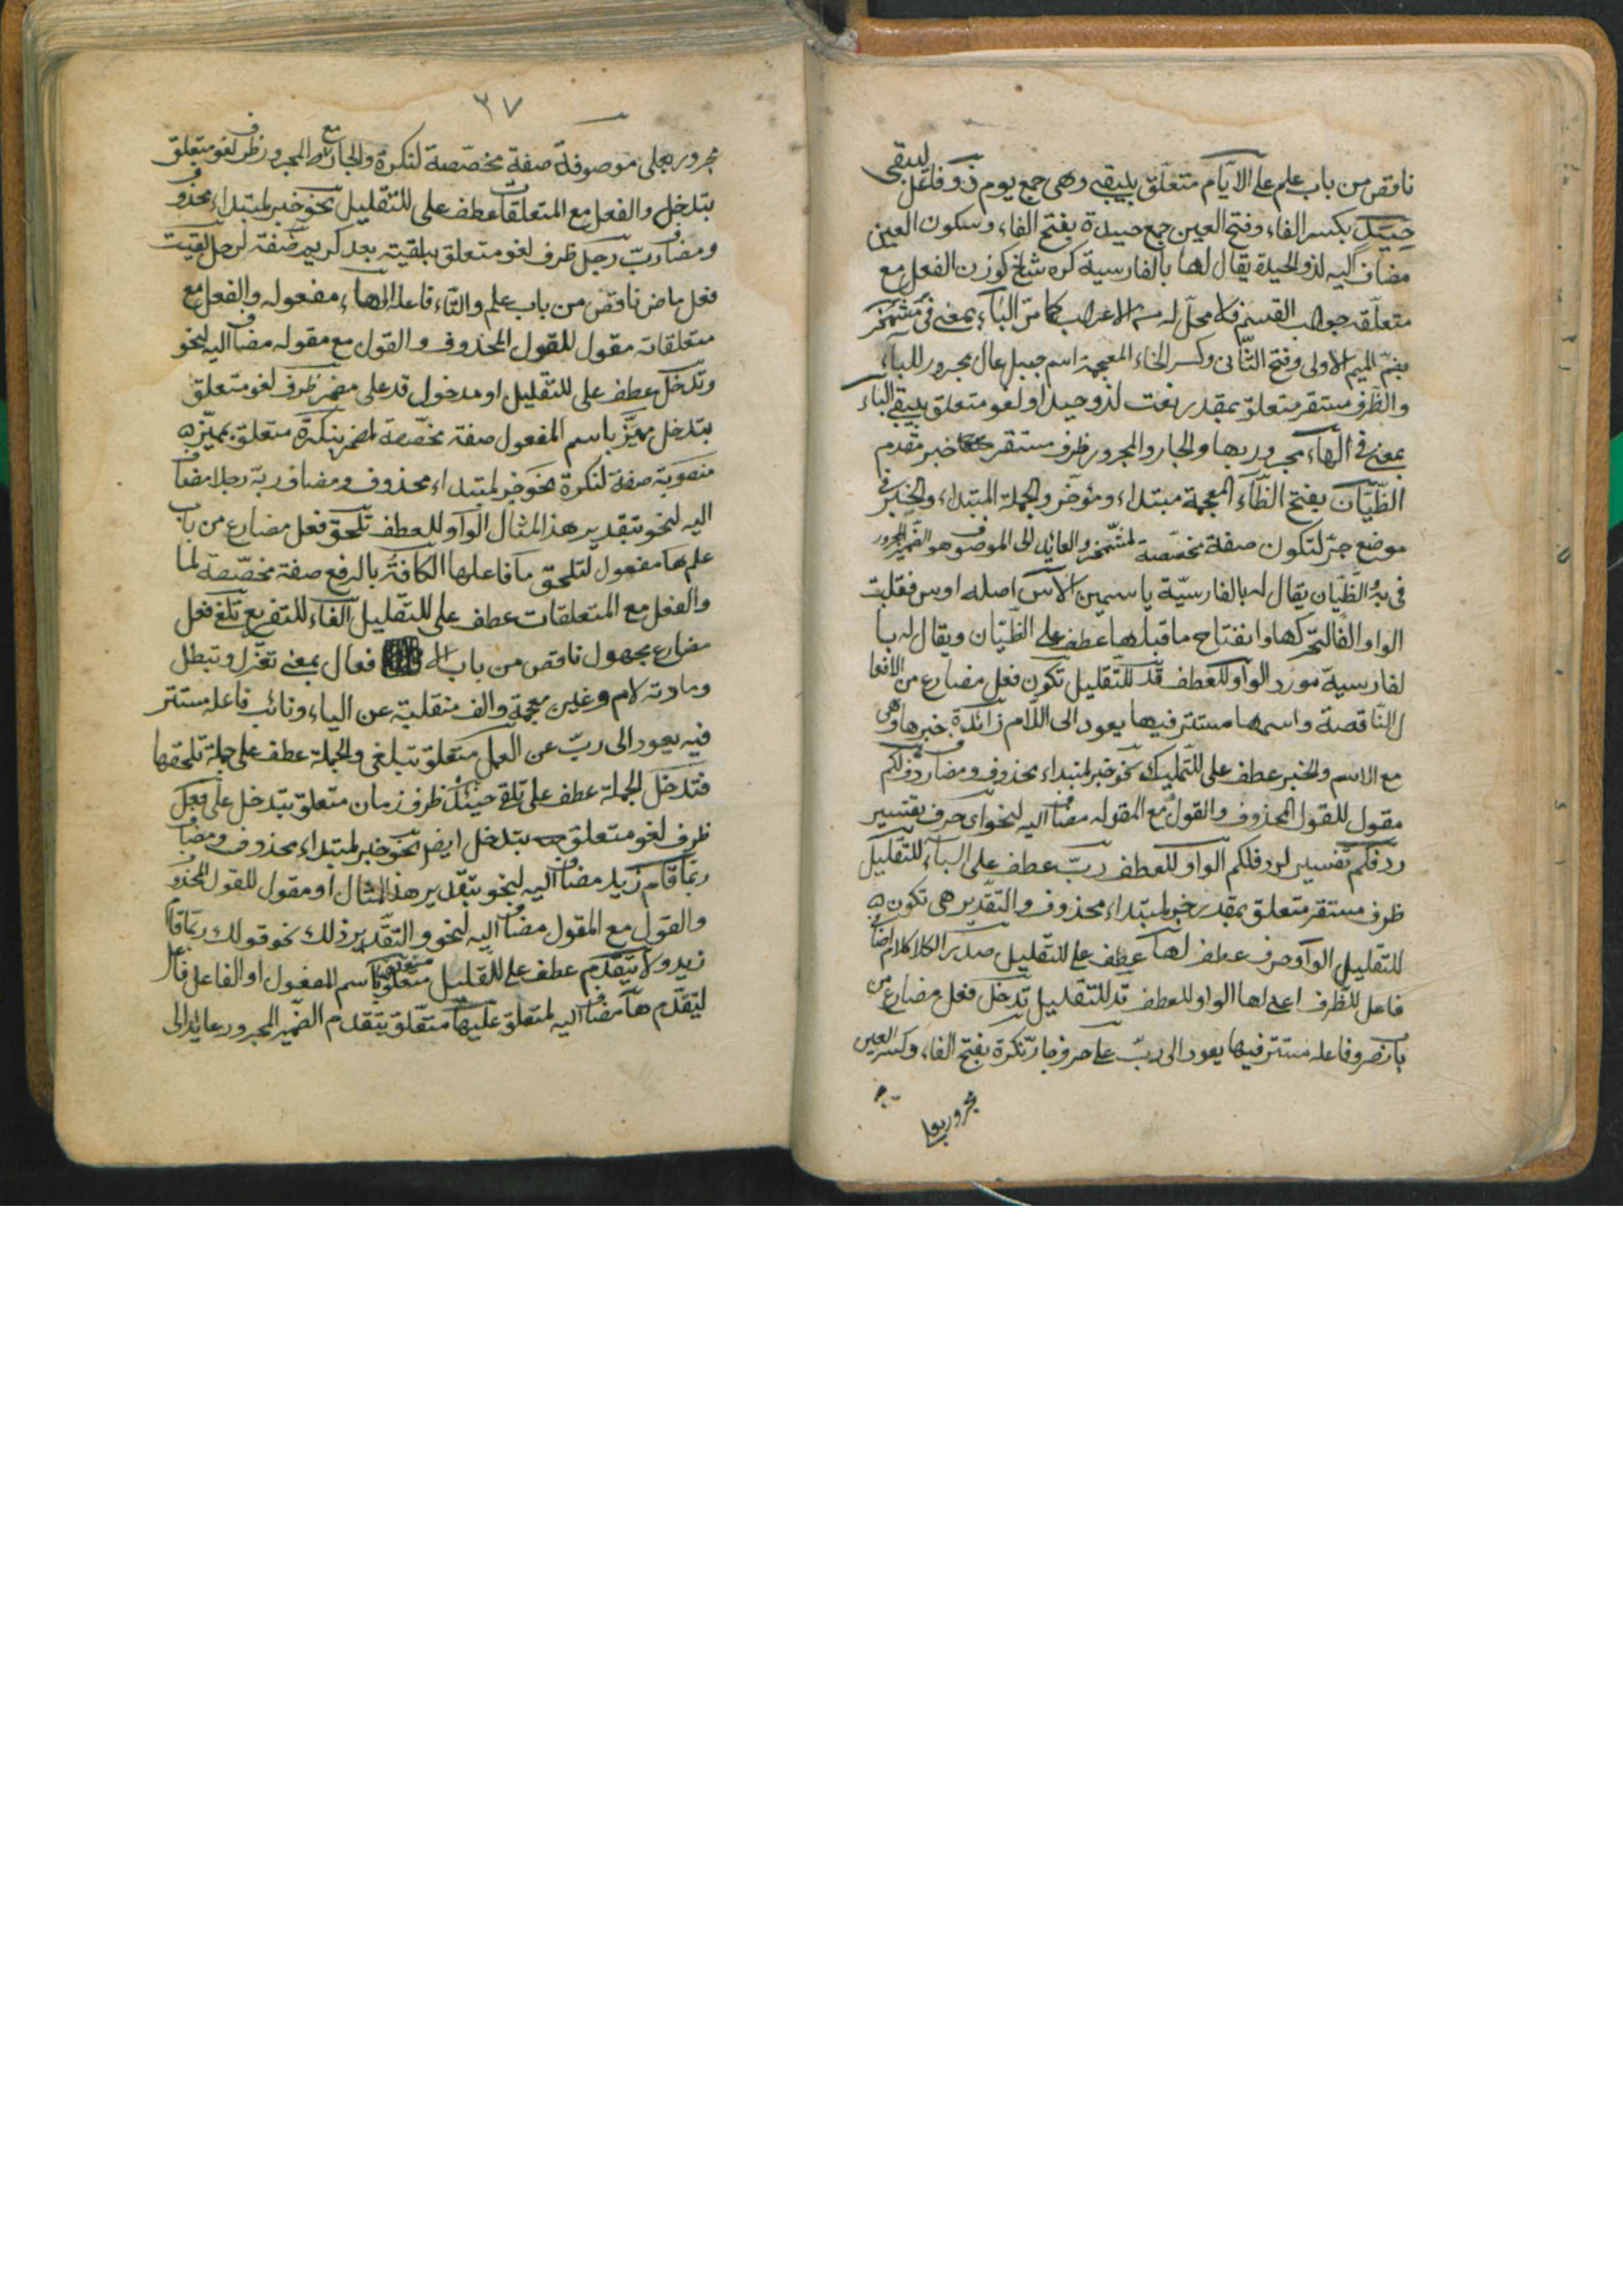 ناقص من باب علم على الايّام متعلّق بيبقى وهى جمع يوم ذو فاعل ليبقى
حِيَدٍ بكسر الفاء وفتح العين جمع حيدة بفتح الفاء وسكون العين
مضاف اليه لذو الحيدة يقال لها بالفارسية كره شاخ كوزن الفعل مع
متعلّقه جواب القسم فلا محلّ له من الاعراب كما مرّ الباء بمعنى فى مشمخر
بضمّ الميم الاولى وفتح الثّانى وكسر الخاء المعجمة اسم جبل عال مجرور للباء
والظّرف مستقر متعلّق بمقدر نعت لذو حيد او لغو متعلق بيبقى الباء
بمعنى فى الهاء مجرور بها والجار والمجرور ظرف مستقر خبر مقدم
الظّيّان بفتح الظّاء المعجمة مبتداء ومؤخّر والجملة المبتداء والخبر فى
موضع جرّ لتكون صفة مخصّصة لمشمخر والعائد الى الموصوف هو الضمير المجرور
فى به الظّيّان يقال له بالفارسيّة ياسمين الآس اصله اوس فقلبت
الواو الفا لتحركها وانفتاح ما قبلها عطف على الظّيّان ويقال له با
لفارسية مورد الواو للعطف قد للتّقليل تكون فعل مضارع من الافعا
ل النّاقصة واسمها مستتر فيها يعود الى اللّام زائدة خبرها وهى
مع الاسم والخبر عطف على للتّمليك نحو خبر لمبتداء محذوف ومضاف ردفلكم
مقول للقول المحذوف والقول مع المقوله مضاف اليه لنحو اى حرف تفسير
ردفكم تفسير لردفلكم الواو للعطف ربّ عطف على الباء للتّقليل
ظرف مستقر متعلق بمقدر خبر لمبتداء محذوف والتّقدير هى تكون
للتقليل الواو حرف عطف لها عطف على للتّقليل صدر الكلام
فاعل للظّرف اعنى لها الواو للعطف قد للتّقليل تدخل فعل مضارع من
باب نصر وفاعله مستتر فيها يعود الى ربّ على حرف جارّ نكرة بفتح الفاء وكسر العين
مجرور بعلى
٣٧
مجرور بعلى موصوفة صفة مخصّصة لنكرة والجار مع المجرور ظرف لغو متعلق
بتدخل والفعل مع المتعلقات عطف على للتقليل نحو خبر لمبتداء محذوف
ومضاف ربّ رجل ظرف لغو متعلق بلقيته بعد كريم صفة لرجل لقيت
فعل ماض ناقص من باب علم والتّاء فاعله الهاء مفعوله والفعل مع
متعلقاته مقول للقول المحذوف والقول مع مقوله مضاف اليه لنحو
وتدخل عطف على للتقليل او مدخول قد على مضمر ظرف لغو متعلق
بتدخل مميّز باسم المفعول صفة مخصّصة لمضمر بنكرة متعلق بمميّز
منصوبة صفة لنكرة نحو خبر لمبتداء محذوف ومضاف ربّه رجلا مضاف
اليه لنحو بتقدير هذا المثال الواو للعطف تلحق فعل مضارع من باب
علم ها مفعول لتلحق ما فاعلها الكافة بالرفع صفة مخصّصة لما
والفعل مع المتعلقات عطف على للتّقليل الفاء للتفريع تلغى فعل
مضارع مجهول ناقص من باب ال فعال بمعنى تعزل وتبطل
ومادته لام وغين معجمة والف منقلبة عن الياء ونائب فاعله مستتر
فيه يعود الى ربّ عن العمل متعلق بتلغى والجملة عطف على جملة تلحقها
فتدخل الجملة عطف على تلغى حينئذ ظرف زمان متعلق بتدخل على فعل
ظرف لغو متعلق بتدخل ايضا نحو خبر لمبتداء محذوف ومضاف
ربّما قام زيد مضاف اليه لنحو بتقدير هذا المثال او مقول للقول المحذوف
والقول مع المقول مضاف اليه لنحو والتقدير ذلك نحو قولك ربّما قام
زيد ولا يتقدّم عطف على للتقليل متعلق باسم المفعول او الفاعل فاعل
ليتقدّم ها مضاف اليه لمتعلق عليها متعلّق بيتقدم الضمير المجرور عائد الى